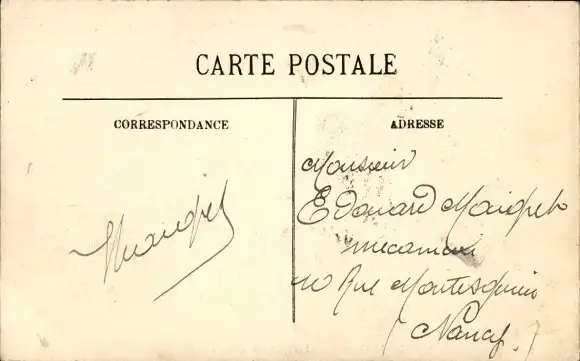 CARTE POSTALE
CORRESPONDANCE
ADRESSE
Monsieur
Edouard
mecanicien
10 Rue Montesquieu
Nancy